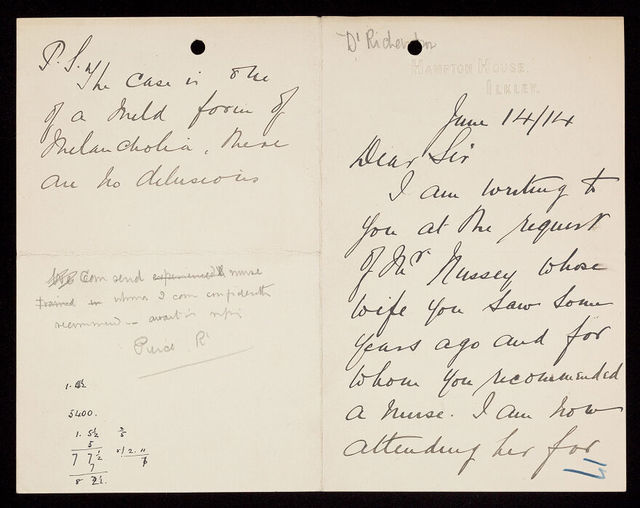 P.S. The case is one
of a mild form of
Melancholia, there
are no delusions
Can send experienced nurse
trained in whom I can confidently
recommend — await
Pierce R
1. 5½
5400.
1. 5½
5
7 7½
7
Dr Richardson
HAMPTON HOUSE.
ILKLEY.
June 14/14
Dear Sir
I am writing to
you at the request
of Mr Nussey whose
wife you saw some
years ago and for
whom you recommended
a nurse. I am now
attending her for